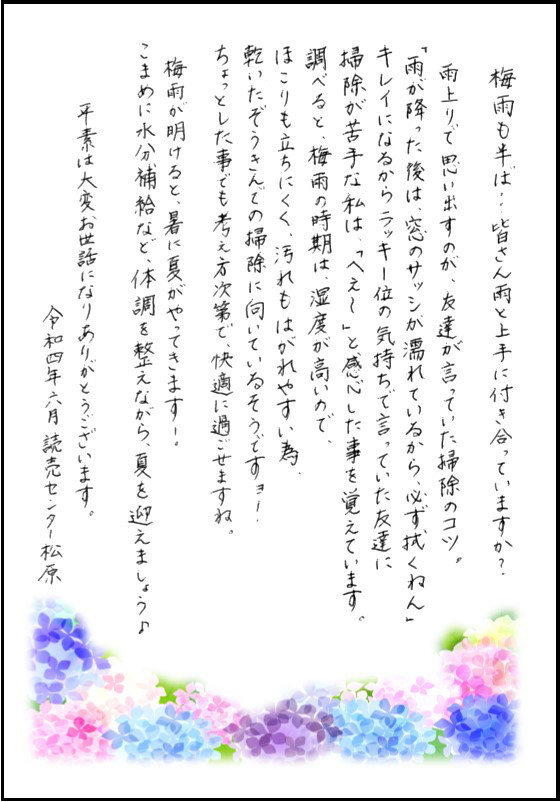 梅雨も半ば…皆さん雨と上手に付き合っていますか？
雨上りで思い出すのが、友達が言っていた掃除のコツ。
「雨が降った後は、窓のサッシが濡れているから必ず拭くねん」
キレイになるからラッキー位の気持ちで言っていた友達に
掃除が苦手な私は、「へえ～」と感心した事を覚えています。
調べると、梅雨の時期は、湿度が高いので、
ほこりも立ちにくく、汚れもはがれやすい為、
乾いたぞうきんでの掃除に向いているそうですョ！
ちょっとした事でも考え方次第で、快適に過ごせますね。
梅雨が明けると、暑に夏がやってきます！
こまめに水分補給など、体調を整えながら、夏を迎えましょう♪
平素は大変お世話になりありがとうございます。
令和四年六月 読売センター松原